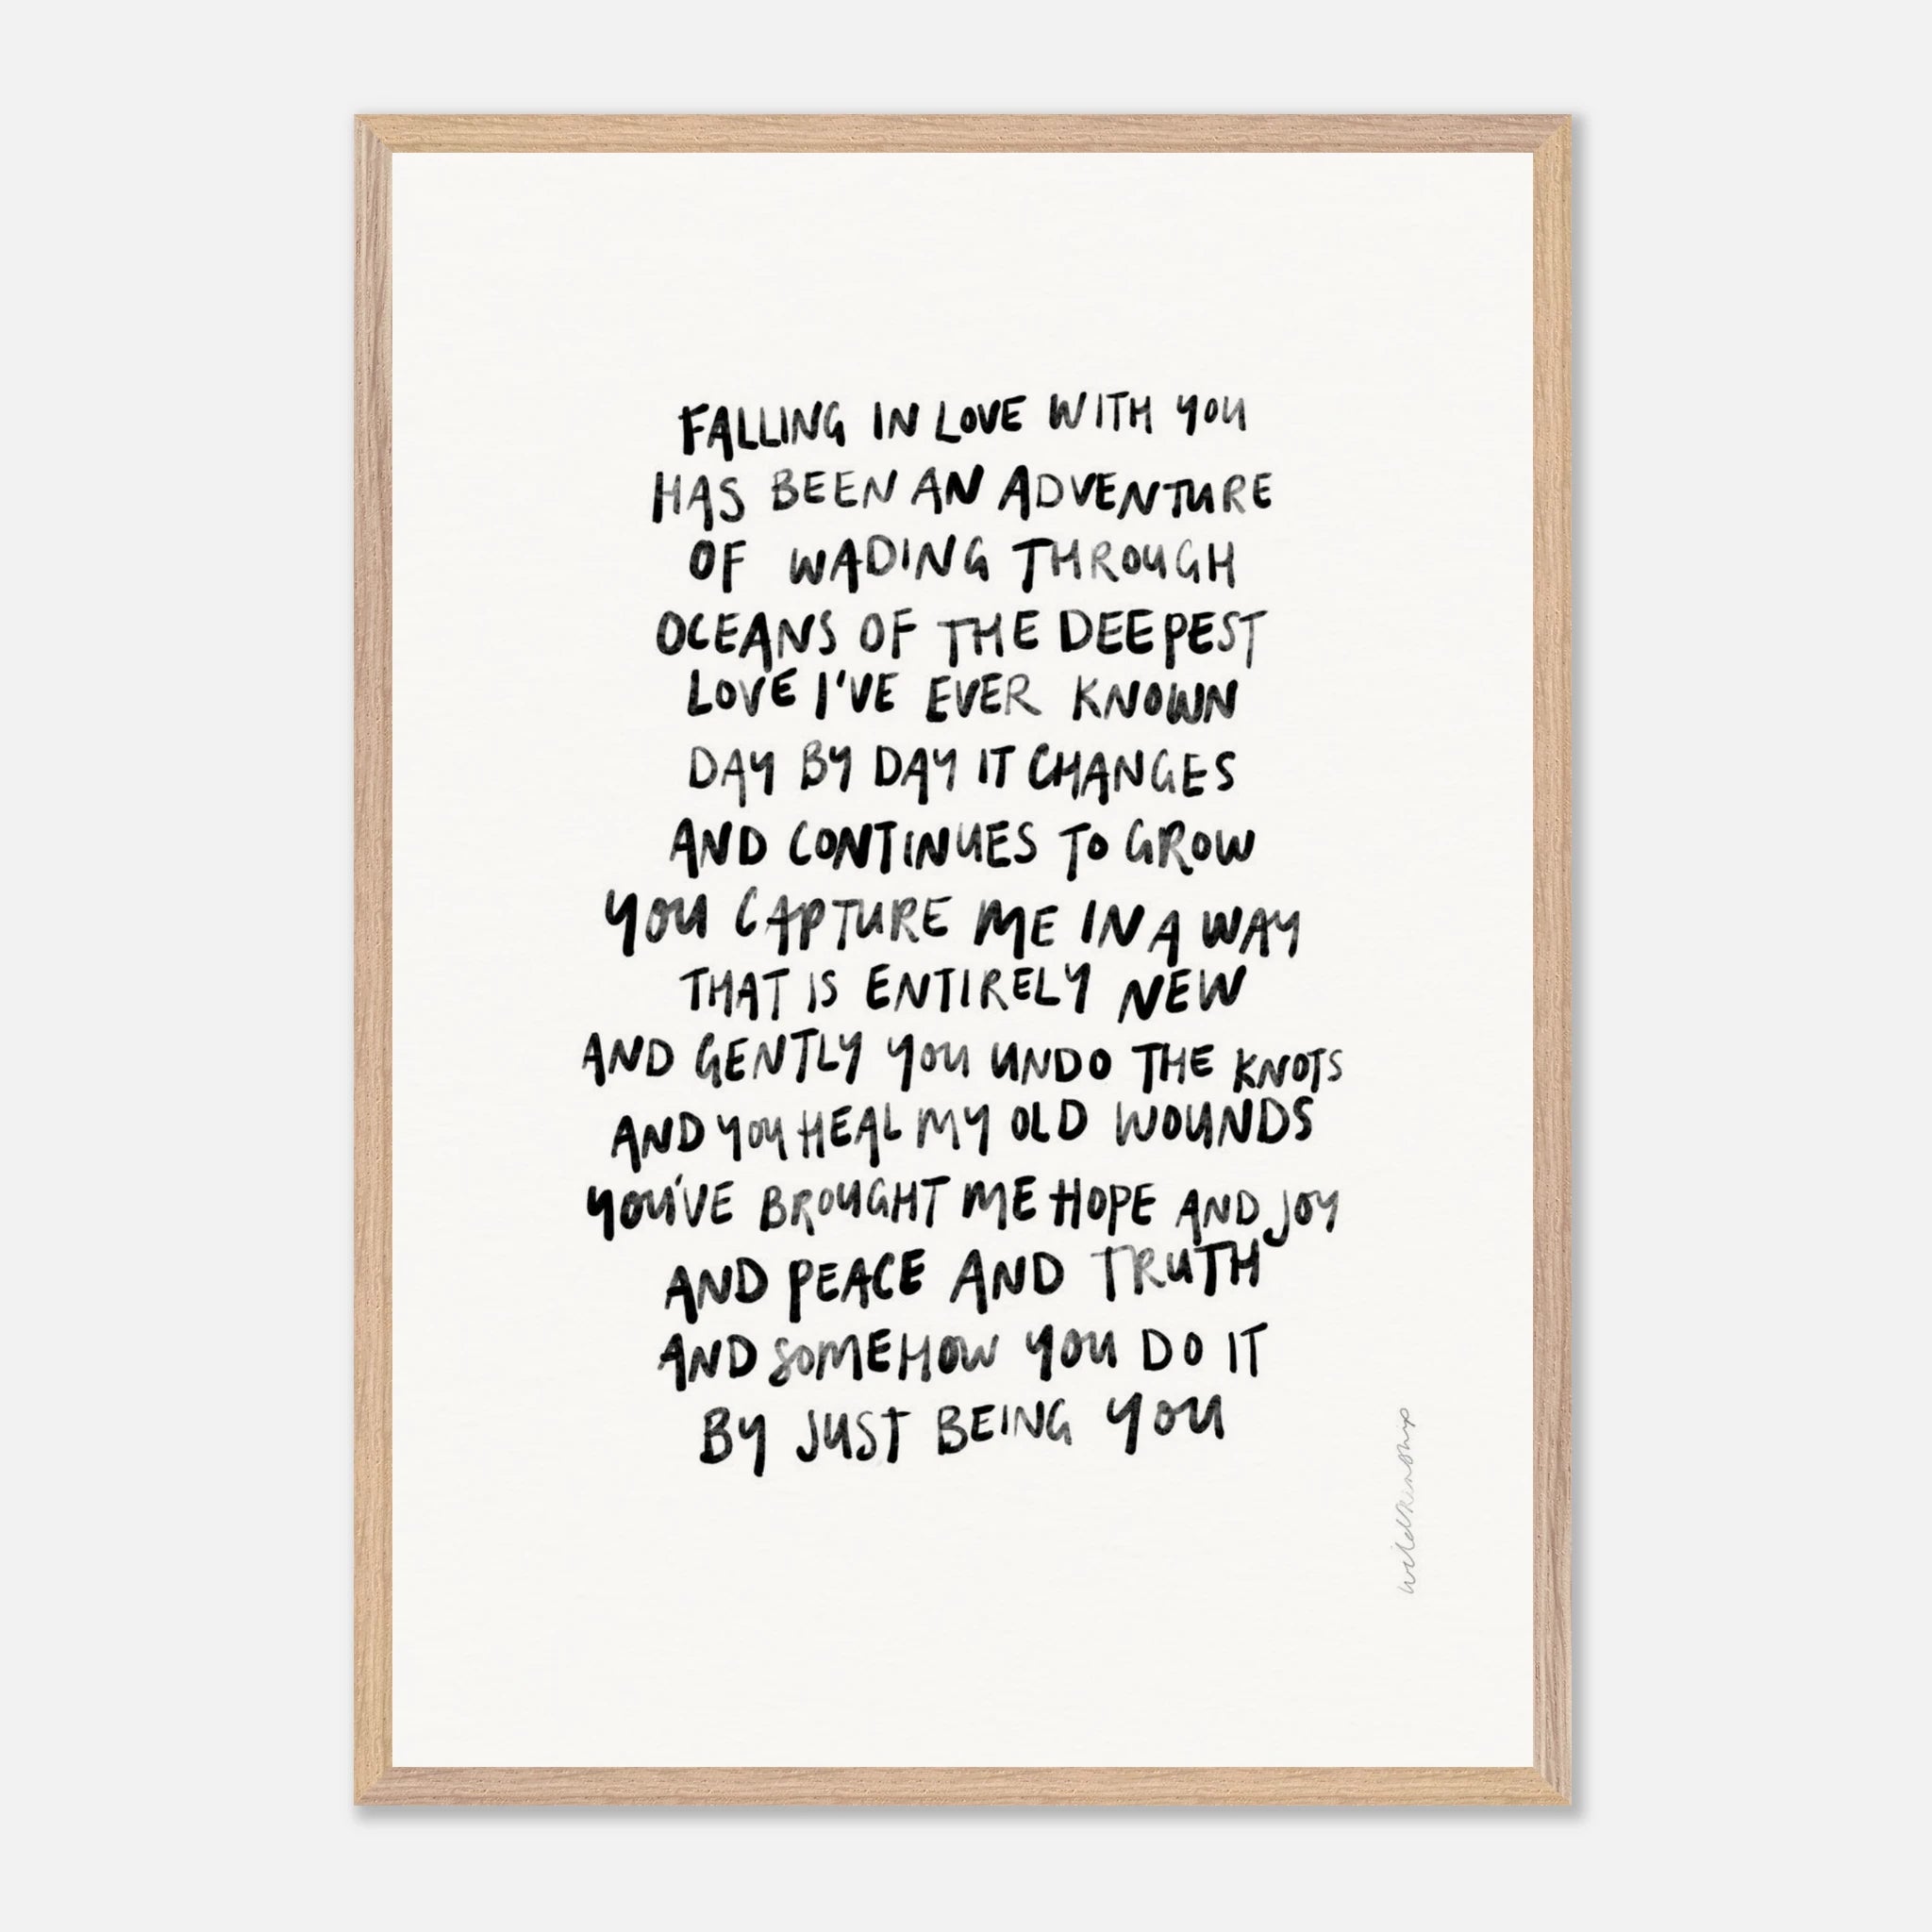 FALLING IN LOVE WITH YOU
HAS BEEN AN ADVENTURE
OF WADING THROUGH
OCEANS OF THE DEEPEST
LOVE I'VE EVER KNOWN
DAY BY DAY IT CHANGES
AND CONTINUES TO GROW
YOU CAPTURE ME IN A WAY
THAT IS ENTIRELY NEW
AND GENTLY YOU UNDO THE KNOTS
AND YOU HEAL MY OLD WOUNDS
YOU'VE BROUGHT ME HOPE AND JOY
AND PEACE AND TRUTH
AND SOMEHOW YOU DO IT
BY JUST BEING YOU
wildkinship